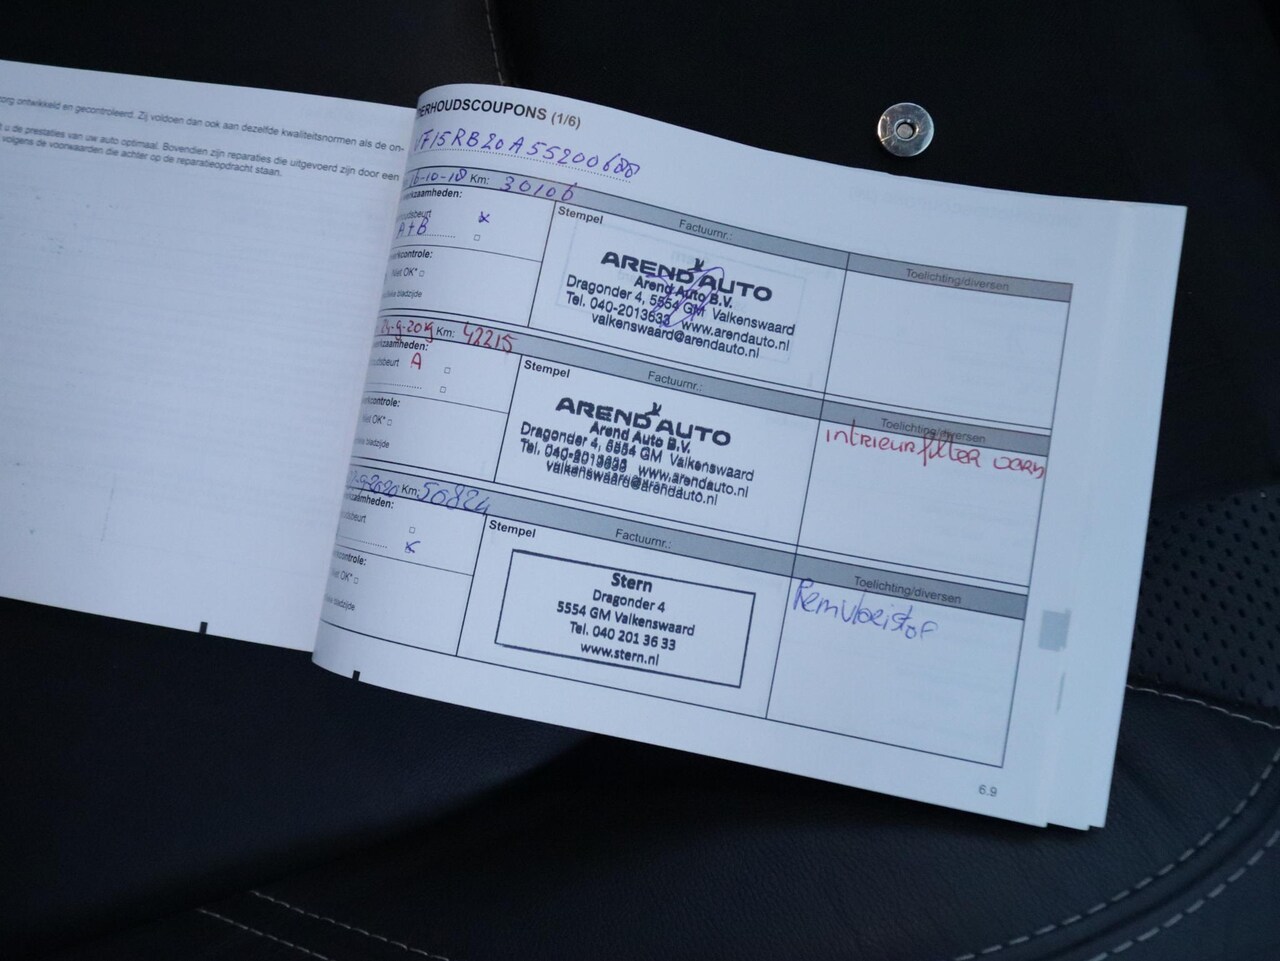 org ontwikkeld en gecontroleerd. Zij voldoen dan ook aan dezelfde kwaliteitsnormen als de on-
t u de prestaties van uw auto optimaal. Bovendien zijn reparaties die uitgevoerd zijn door een
volgens de voorwaarden die achter op de reparatieopdracht staan.
ERHOUDSCOUPONS (1/6)
VF15RB20A55200688
16-10-18 Km: 30106
rkzaamheden:
dsbeurt
A+B
rkcontrole:
Niet OK*
bladzijde
Stempel
Factuurnr.:
Toelichting/diversen
AREND AUTO
Arend Auto B.V.
Dragonder 4, 5554 GM Valkenswaard
Tel. 040-2013633 www.arendauto.nl
valkenswaard@arendauto.nl
24-9-2019 Km: 42215
zaamheden:
sbeurt A
kcontrole:
Niet OK*
bladzijde
Stempel
Factuurnr.:
Toelichting/diversen
AREND AUTO
Arend Auto B.V.
Dragonder 4, 5554 GM Valkenswaard
Tel. 040-2013633 www.arendauto.nl
valkenswaard@arendauto.nl
intrieurfilter verv
-9-2020 Km: 50824
zaamheden:
sbeurt
controle:
Niet OK*
bladzijde
Stempel
Factuurnr.:
Toelichting/diversen
Stern
Dragonder 4
5554 GM Valkenswaard
Tel. 040 201 36 33
www.stern.nl
Remvloeistof
6.9